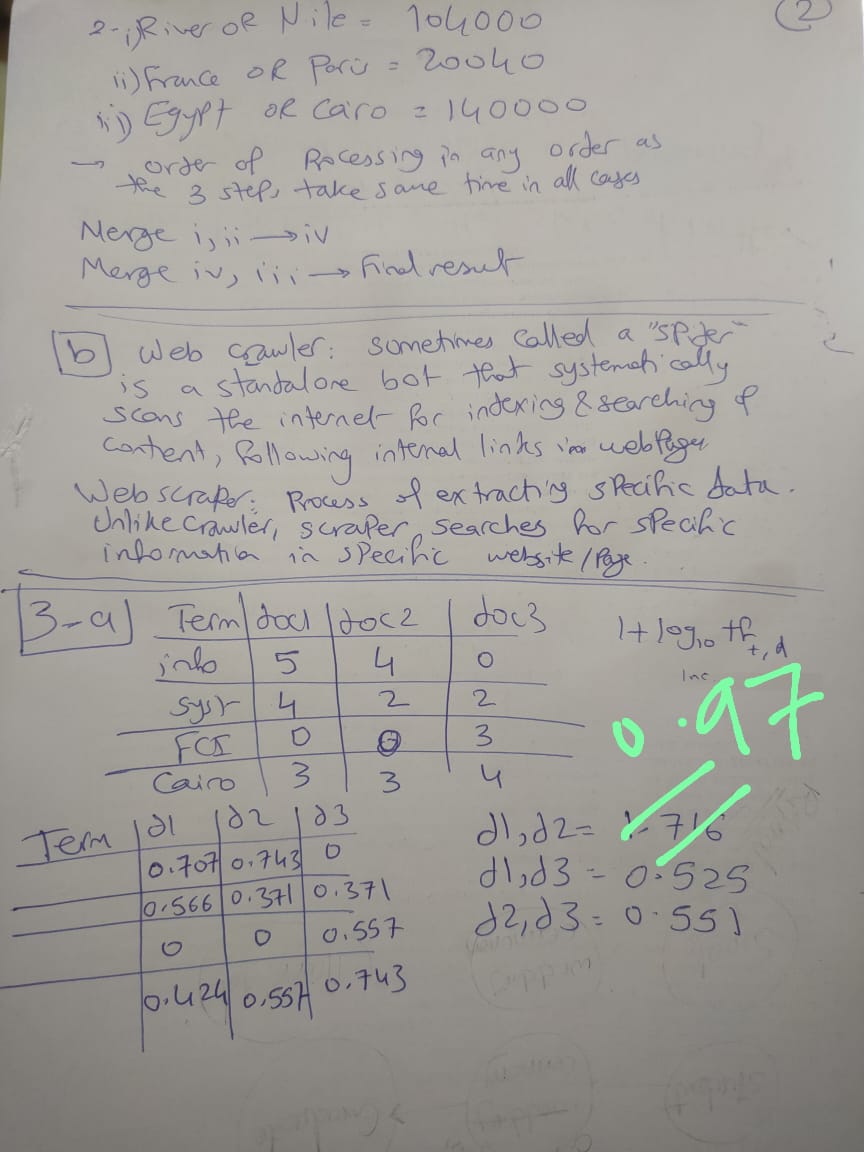 (2)
2-i) River OR Nile = 104000
ii) France OR Paris = 20040
iii) Egypt OR Cairo = 140000
→ order of Processing in any order as
the 3 steps take same time in all cases
Merge i, ii → iv
Merge iv, iii → Final result
b Web crawler: sometimes called a "spider"
is a standalone bot that systematically
scans the internet for indexing & searching of
content, following internal links in web Pages
Web scraper: Process of extracting specific data.
Unlike crawler, scraper searches for specific
information in specific website/Page.
3-a
Term doc1 doc2 doc3
info 5 4 0
syst 4 2 2
FCI 0 0 3
Cairo 3 3 4
1+log10 tf t,d
lnc
0.97
Term d1 d2 d3
0.707 0.743 0
0.566 0.371 0.371
0 0 0.557
0.424 0.557 0.743
d1,d2= 1.716
d1,d3 = 0.525
d2,d3 = 0.551